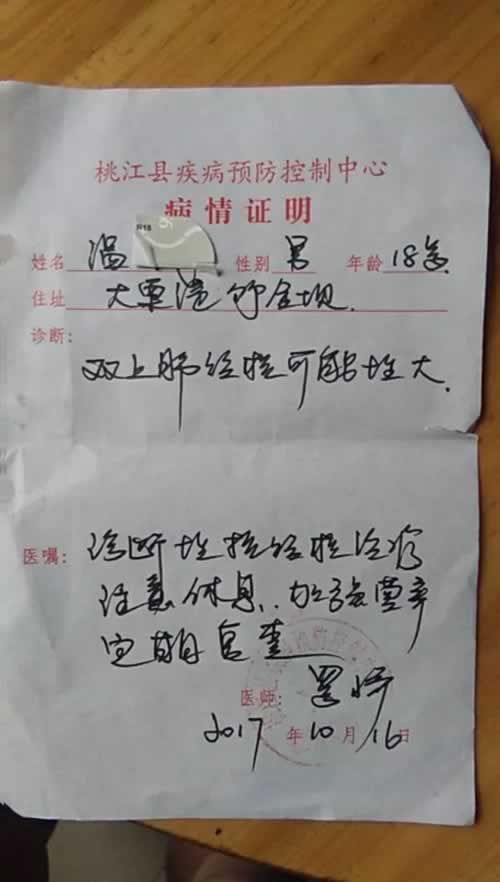 桃江县疾病预防控制中心
病情证明
姓名 温 性别 男 年龄 18岁
住址 大栗港
诊断:
双上肺结核可能性大.
医嘱:
诊断性抗结核治疗
注意休息. 加强营养
定期复查
医师: 
2017年10月16日